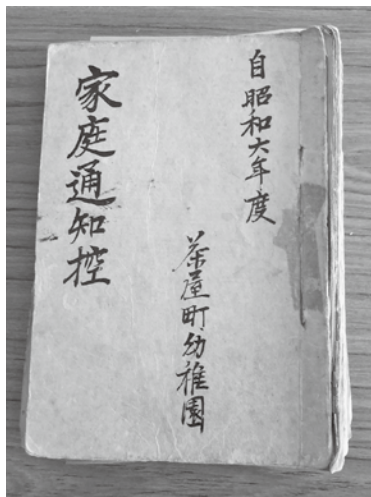 自昭和六年度
茶屋町幼稚園
家庭通知控